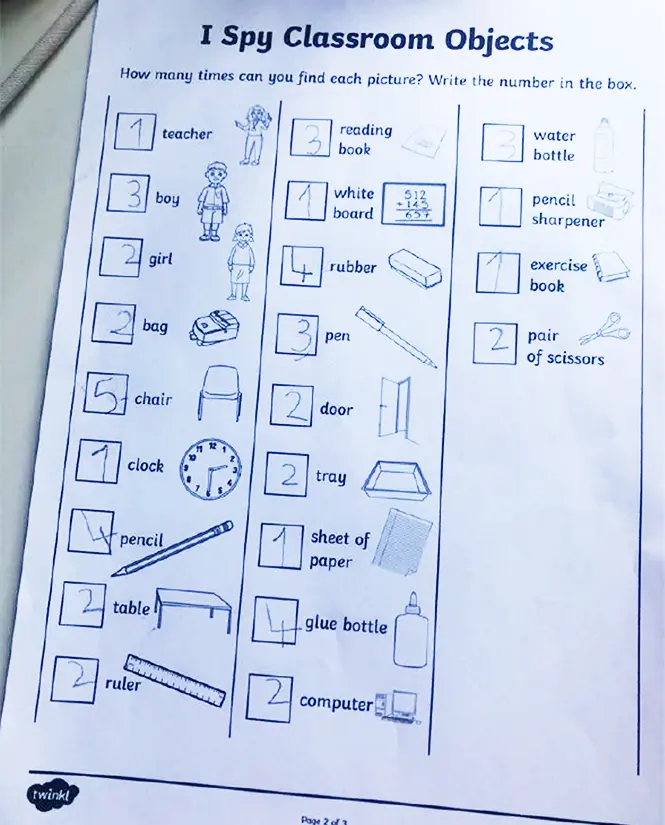 I Spy Classroom Objects
How many times can you find each picture? Write the number in the box.
1 teacher
3 boy
2 girl
2 bag
5 chair
1 clock
12
1
2
3
4
5
6
7
8
9
10
11
4 pencil
2 table
2 ruler
3 reading
book
1 white
board
512
+145
657
4 rubber
3 pen
2 door
2 tray
1 sheet of
paper
4 glue bottle
2 computer
3 water
bottle
1 pencil
sharpener
1 exercise
book
2 pair
of scissors
twinkl
Page 2 of 3